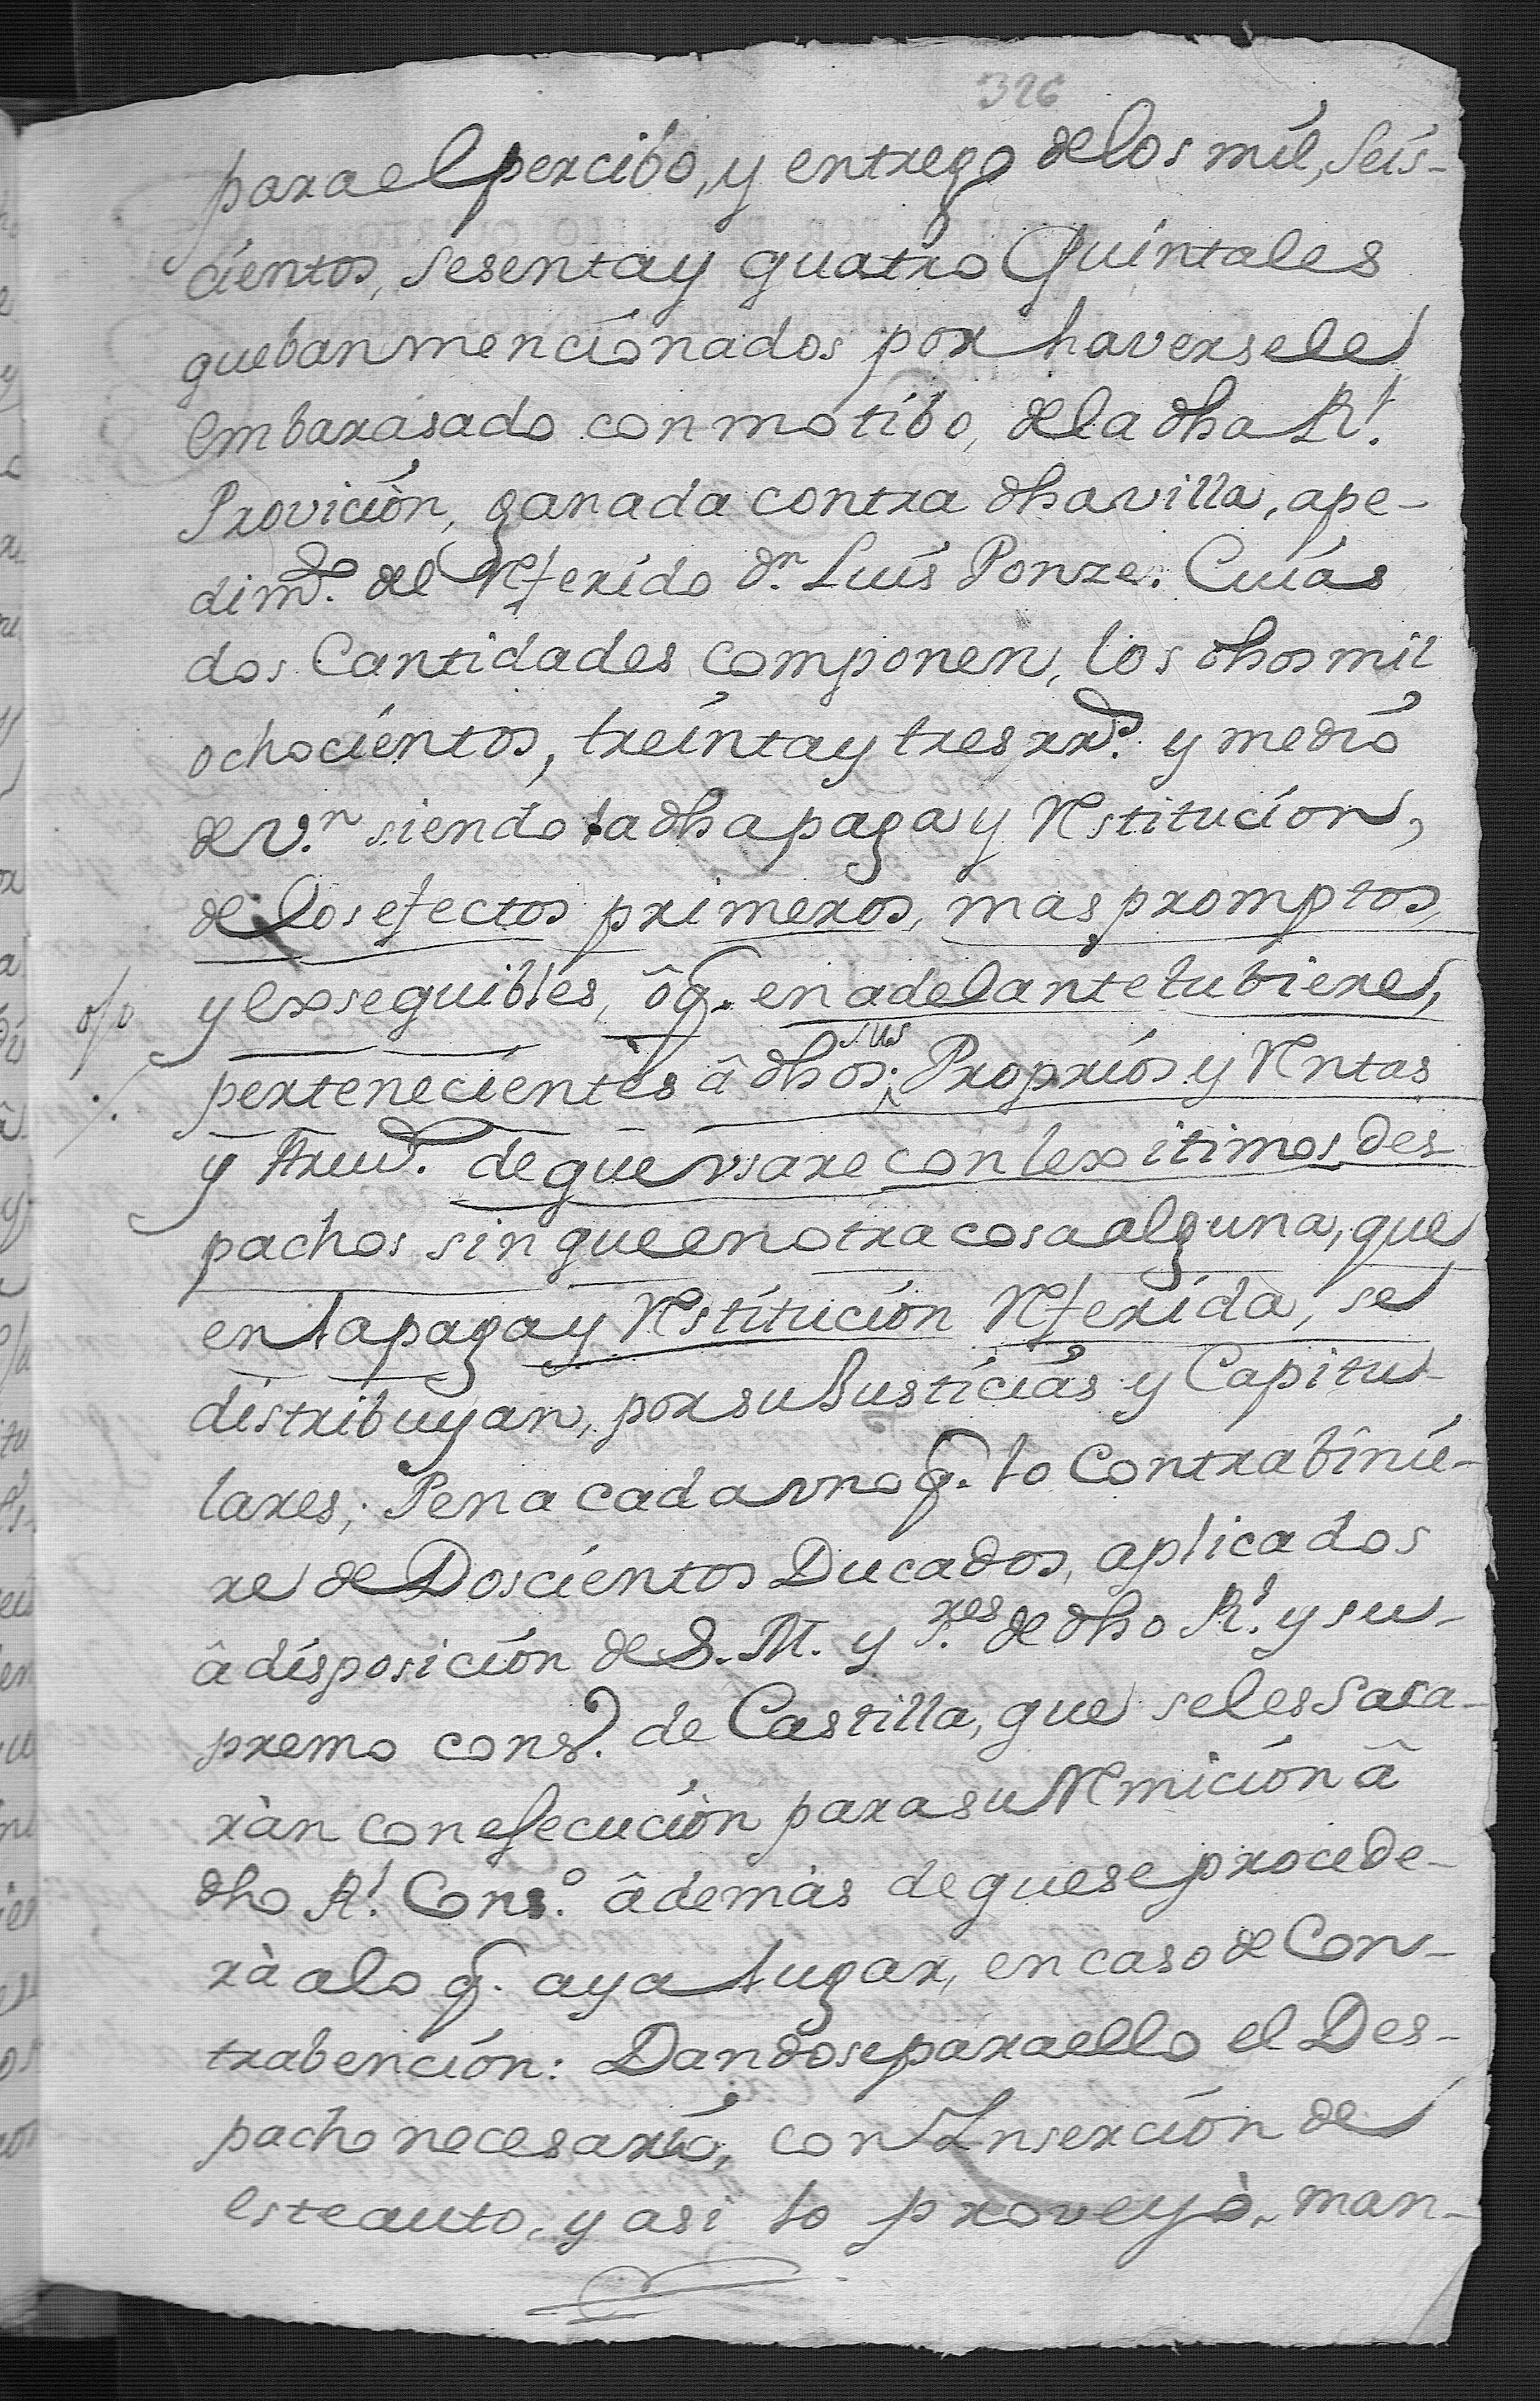 326
para el percibo, y entrego de los mil, Seis-
cientos, sesenta y quatro Quintales
que ban mencionados por haversele
embarasado con motibo, de la dha Rl.
Provición, ganada contra dha villa, a pe-
dimto. del Referido dn. Luis Ponze. Cuias
dos Cantidades componen, los dhos mil
ochocientos, treinta y tres rrs. y medio
de vn. siendo la dha paga y Restitución,
de los efectos primeros, mas promptos,
y exseguibles, ô q. en adelante tubiere,
pertenecientes â dhos. sus Proprios y Rentas
y de que vsare con lexitimos des-
pachos sin que en otra cosa alguna, que
en la paga y Restitución Referida, se
distribuyan, por su Justicias y Capitu-
lares; Pena cada vno q. lo Contrabinie-
re de Doscientos Ducados, aplicados
â disposición de S. M. y Sres. de dho Rl. y su-
premo conso. de Castilla, que se les saca-
ràn con efecución para su Remición â
dho Rl. Conso. âdemàs de que se procede-
rà a lo q. aya lugar, en caso de Con-
trabención: Dandose para ello el Des-
pacho necesario, con Inserción de
este auto, y asi lo proveyò, man-